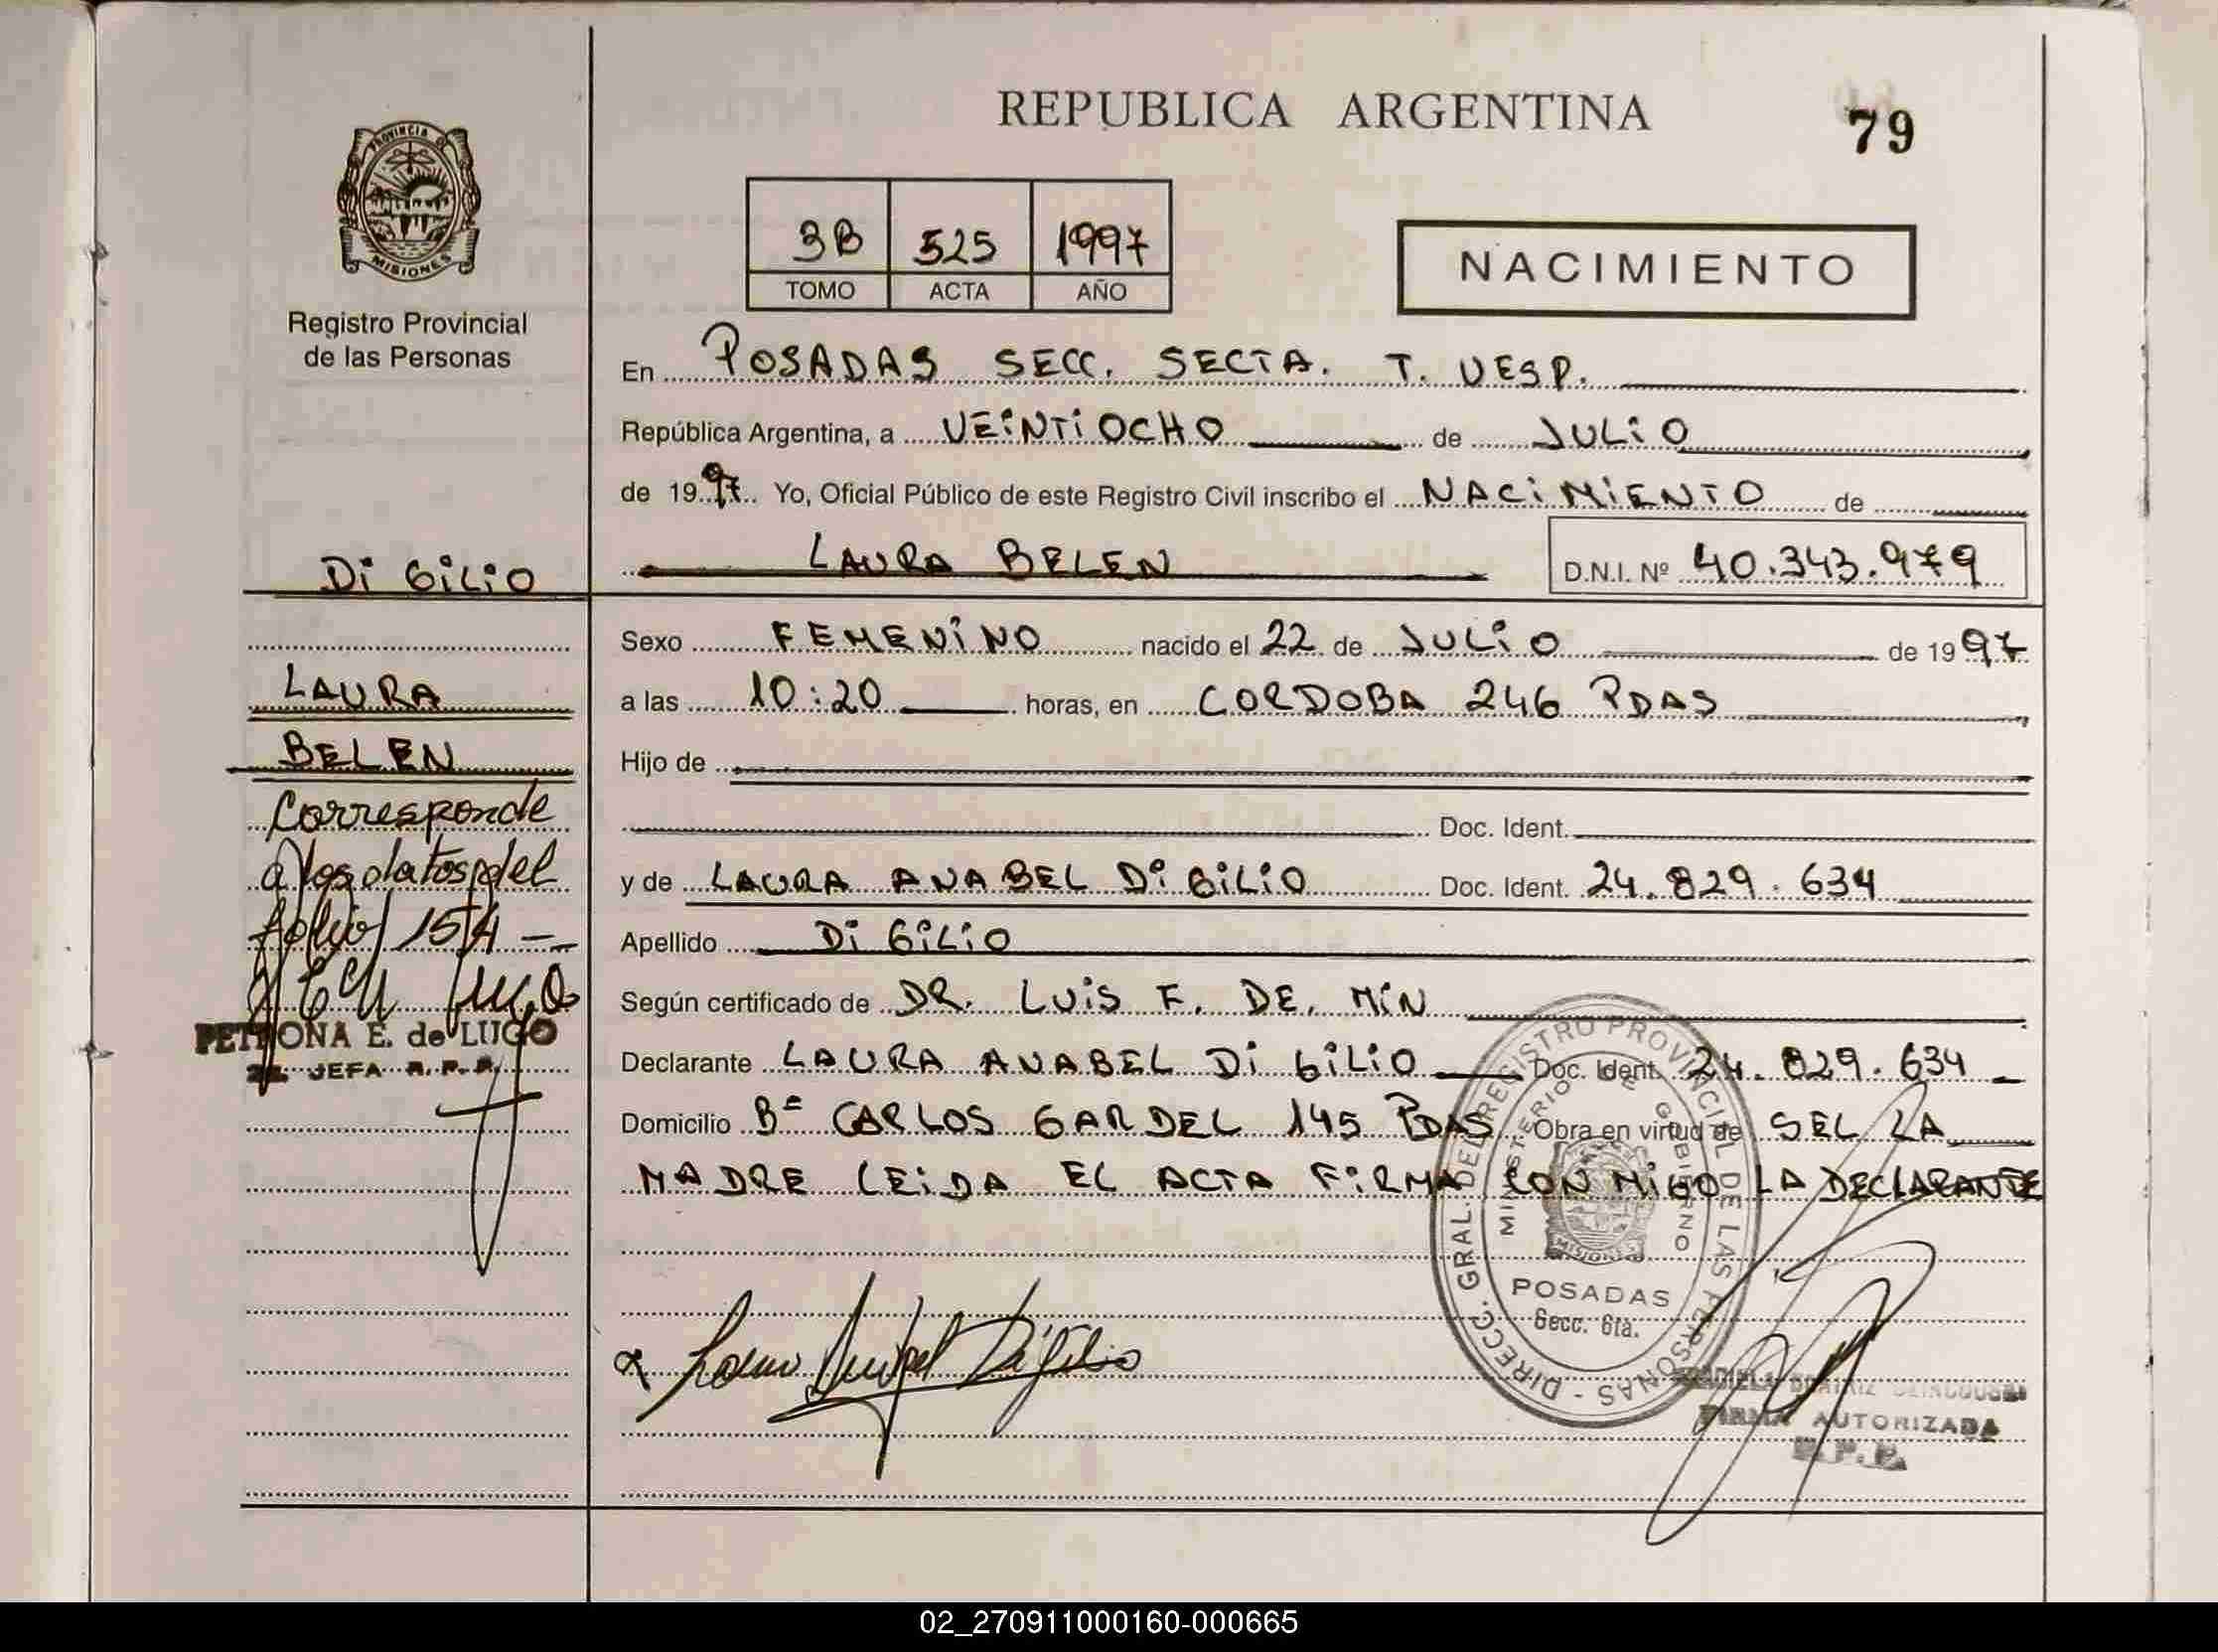 REPUBLICA ARGENTINA
79
PROVINCIA DE
MISIONES
Registro Provincial
de las Personas
3B 525 1997
TOMO ACTA AÑO
NACIMIENTO
En POSADAS SECC. SECTA. T. VESP.
República Argentina, a VEINTIOCHO de JULIO
de 1997 Yo, Oficial Público de este Registro Civil inscribo el NACIMIENTO de
LAURA BELEN D.N.I. Nº 40.343.979
Sexo FEMENINO nacido el 22 de JULIO de 1997
a las 10:20 horas, en CORDOBA 246 PDAS
Hijo de
Doc. Ident.
y de LAURA ANABEL DI GILIO Doc. Ident. 24.829.634
Apellido DI GILIO
Según certificado de DR. LUIS F. DE. MIN
Declarante LAURA ANABEL DI GILIO Doc. Ident. 24.829.634
Domicilio Bº CARLOS GARDEL 145 PDAS Obra en virtud de SEL LA
MADRE LEIDA EL ACTA FIRMA CON MIGO LA DECLARANTE
DI GILIO
LAURA
BELEN
Corresponde
a los datos del
folio 154
PETRONA E. de LUGO
2a. JEFA R. P. P.
DIRECC. GRAL. DEL REGISTRO PROVINCIAL DE LAS PERSONAS -
MINISTERIO DE GOBIERNO
MISIONES
POSADAS
Secc. 6ta.
Laura Anabel Di Gilio
BEATRIZ
FIRMA AUTORIZADA
R.P.P.
02_270911000160-000665